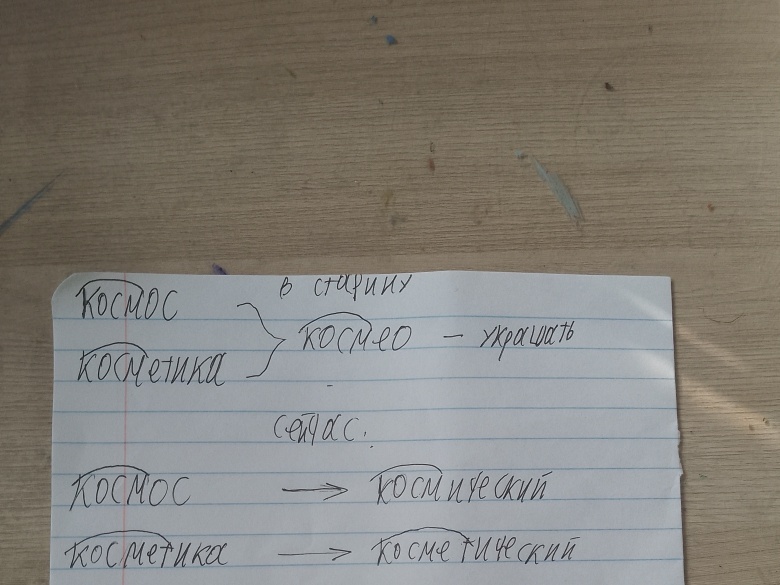 в старину
космос
космео — украшать
косметика
сейчас:
космос → космический
косметика → косметический